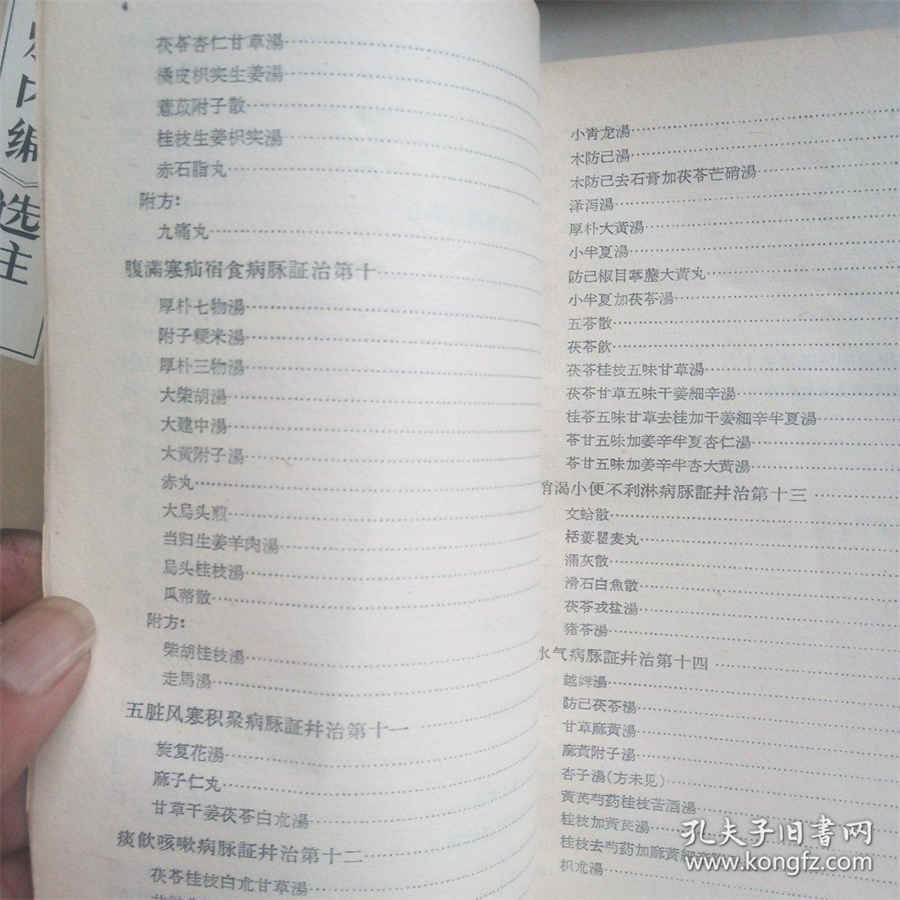 编》选
主
茯苓杏仁甘草湯
橘皮枳实生姜湯
薏苡附子散
桂枝生姜枳实湯
赤石脂丸
附方：
九痛丸
腹满寒疝宿食病脉証治第十
厚朴七物湯
附子粳米湯
厚朴三物湯
大柴胡湯
大建中湯
大黃附子湯
赤丸
大烏头煎
当归生姜羊肉湯
烏头桂枝湯
瓜蒂散
附方：
柴胡桂枝湯
走馬湯
五脏风寒积聚病脉証幷治第十一
旋复花湯
麻子仁丸
甘草干姜茯苓白朮湯
痰飲咳嗽病脉証幷治第十二
茯苓桂枝白朮甘草湯
小青龙湯
木防己湯
木防己去石膏加茯苓芒硝湯
泽泻湯
厚朴大黃湯
小半夏湯
防己椒目葶藶大黃丸
小半夏加茯苓湯
五苓散
茯苓飲
茯苓桂枝五味甘草湯
茯苓甘草五味干姜細辛湯
桂苓五味甘草去桂加干姜細辛半夏湯
苓甘五味加姜辛半夏杏仁湯
苓甘五味加姜辛半杏大黃湯
消渴小便不利淋病脉証幷治第十三
文蛤散
栝蔞瞿麦丸
蒲灰散
滑石白魚散
茯苓戎盐湯
猪苓湯
水气病脉証幷治第十四
越婢湯
防己茯苓湯
甘草麻黃湯
麻黃附子湯
杏子湯(方未见)
黃芪芍药桂枝苦酒湯
桂枝加黃芪湯
桂枝去芍药加麻黃細辛
枳朮湯
孔夫子旧书网
www.kongfz.com